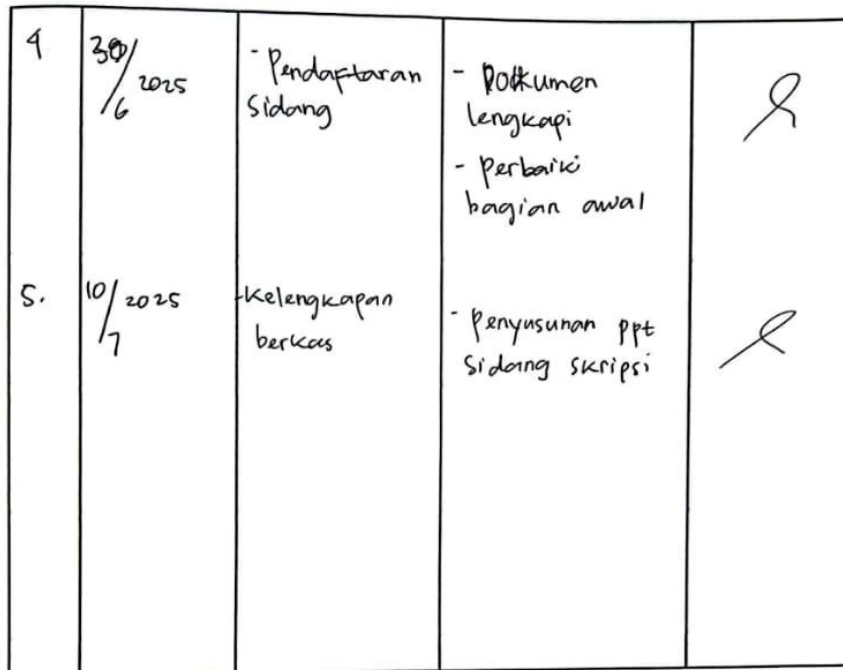 4
30/6 2025
- Pendaftaran
Sidang
- Dokumen
lengkapi
- Perbaiki
bagian awal
5.
10/7 2025
- Kelengkapan
berkas
- Penyusunan ppt
Sidang skripsi